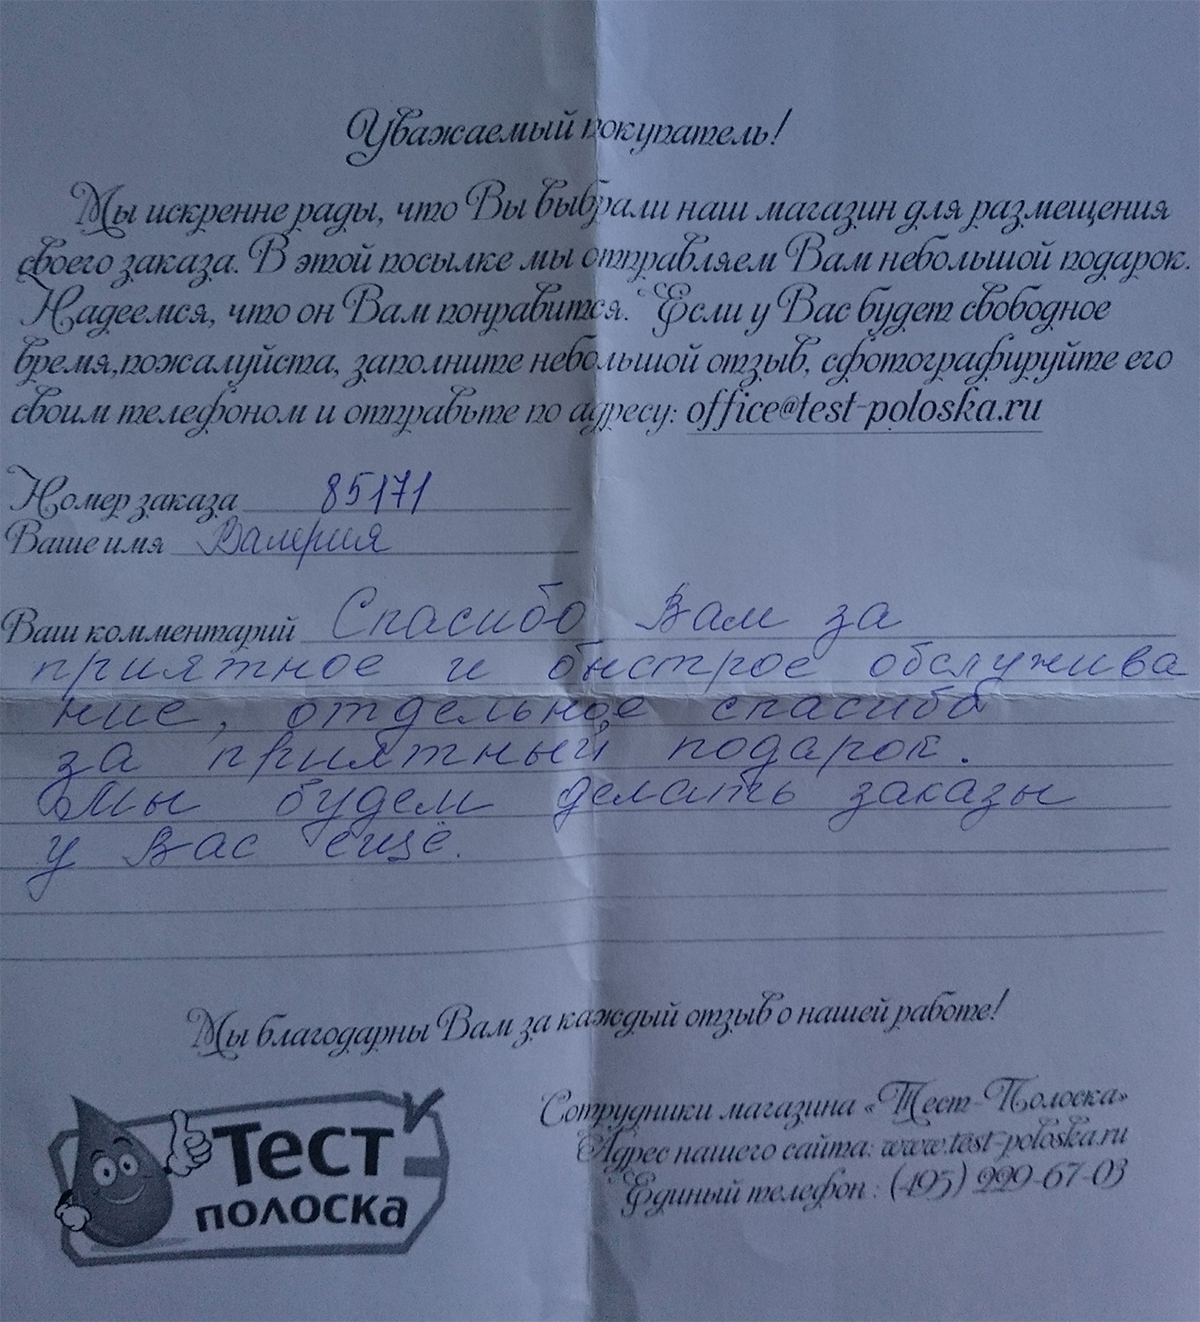 Уважаемый покупатель!
Мы искренне рады, что Вы выбрали наш магазин для размещения
своего заказа. В этой посылке мы отправляем Вам небольшой подарок.
Надеемся, что он Вам понравится. Если у Вас будет свободное
время,пожалуйста, заполните небольшой отзыв, сфотографируйте его
своим телефоном и отправьте по адресу: office@test-poloska.ru
Номер заказа 85171
Ваше имя Валерия
Ваш комментарий Спасибо Вам за
приятное и быстрое обслужива
ние, отдельное спасибо
за приятный подарок.
Мы будем делать заказы
у Вас ещё.
Мы благодарны Вам за каждый отзыв о нашей работе!
Сотрудники магазина «Тест-Полоска»
Адрес нашего сайта: www.test-poloska.ru
Единый телефон : (495) 229-67-03
Тест
полоска